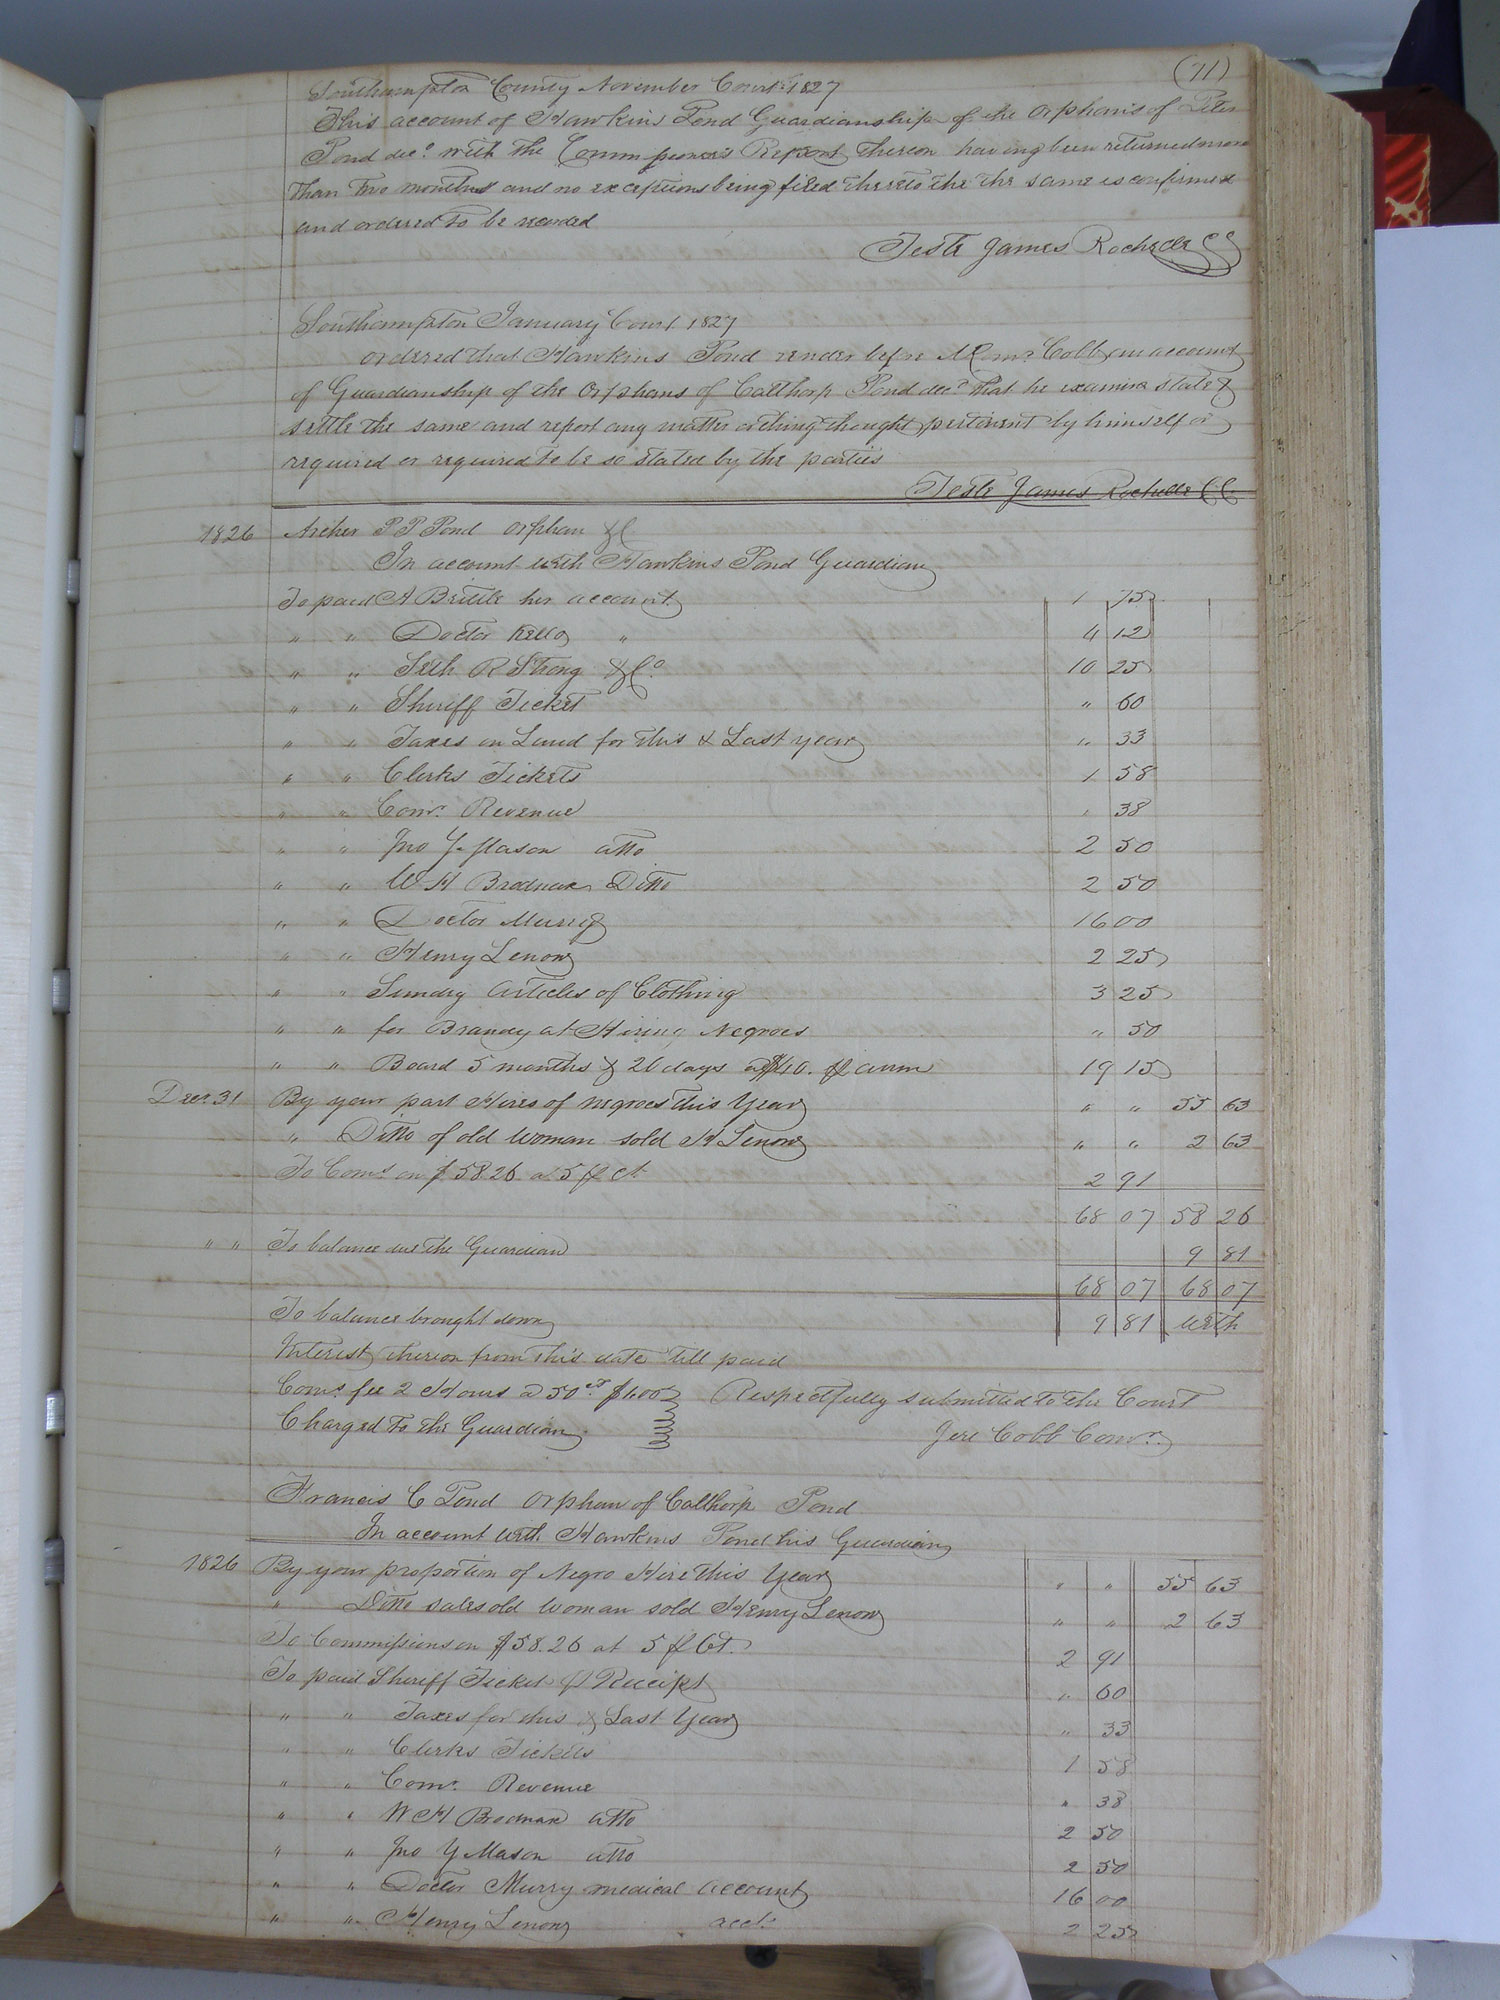 (71)
Southampton County November Court 1827
This account of Hawkins Pond Guardianship of the Orphans of Peter
Pond decd. with the Commissioners Report thereon having been returned more
than two months and no exceptions being filed thereto the the same is confirmed
and ordered to be recorded
Teste James Rochelle CC
Southampton January Court 1827
ordered that Hawkins Pond render before Cobb an account
of Guardianship of the Orphans of Calthorp Pond decd. that he examine state &
settle the same and report any matter or thing thought pertinent by himself or
required or required to be so stated by the parties
Teste James Rochelle CC
1826 Archer P P Pond Orphan &C
In account with Hawkins Pond Guardian
To paid A Brittle her account 1 75
" " Doctor Kello " 4 12
" " Seth R Strong &Co. 10 25
" " Sheriff Ticket " 60
" " Taxes on Land for this & Last year " 33
" " Clerks Tickets 1 58
" " Comr. Revenue " 38
" " Jno Y Mason atto 2 50
" " W H Brodnax Ditto 2 50
" " Doctor Murry 16 00
" " Henry Lenow 2 25
" " Sundry Articles of Clothing 3 25
" " for Brandy at Hiring Negroes " 50
" " Board 5 months & 20 days a $40. P annm 19 15
Decr. 31 By your part Hires of negroes this Year " " 55 63
" Ditto of old woman sold H Lenow " " 2 63
To Coms on $58.26 a 5 P Ct 2 91
68 07 58 26
" " To balance due the Guardian 9 81
68 07 68 07
To balance brought down 9 81 with
Interest thereon from this date till paid
Coms. fee 2 Hours a 50 cts $1.00 Respectfully submitted to the Court
Charged to the Guardian Jere Cobb Comr.
Francis C Pond Orphan of Calthorp Pond
In account with Hawkins Pond his Guardian
1826 By your proportion of Negro Hire this Year " " 55 63
" Ditto sales old woman sold Henry Lenow " " 2 63
To Commissions on $58.26 at 5 P Ct. 2 91
To paid Sheriff Ticket P Receipt " 60
" " Taxes for this & Last Year " 33
" " Clerks Tickets 1 58
" " Comr. Revenue " 38
" " W H Brodnax atto 2 50
" " Jno Y Mason atto 2 50
" " Doctor Murry medical account 16 00
" " Henry Lenow acct. 2 25